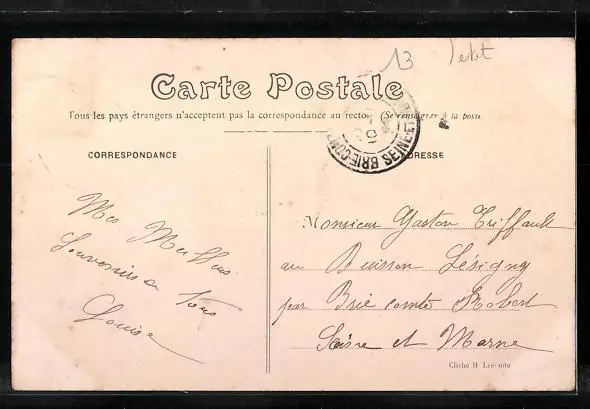 13
Carte Postale
Tous les pays étrangers n'acceptent pas la correspondance au recto. (Se renseigner à la poste
BRIE-COM SEINE-ET-
CORRESPONDANCE
ADRESSE
Mes Meilleurs
Souvenirs a Tous
Louise
Monsieur Gaston Triffault
au Buisson Lésigny
par Brie comte Robert
Seine et Marne
Cliché H